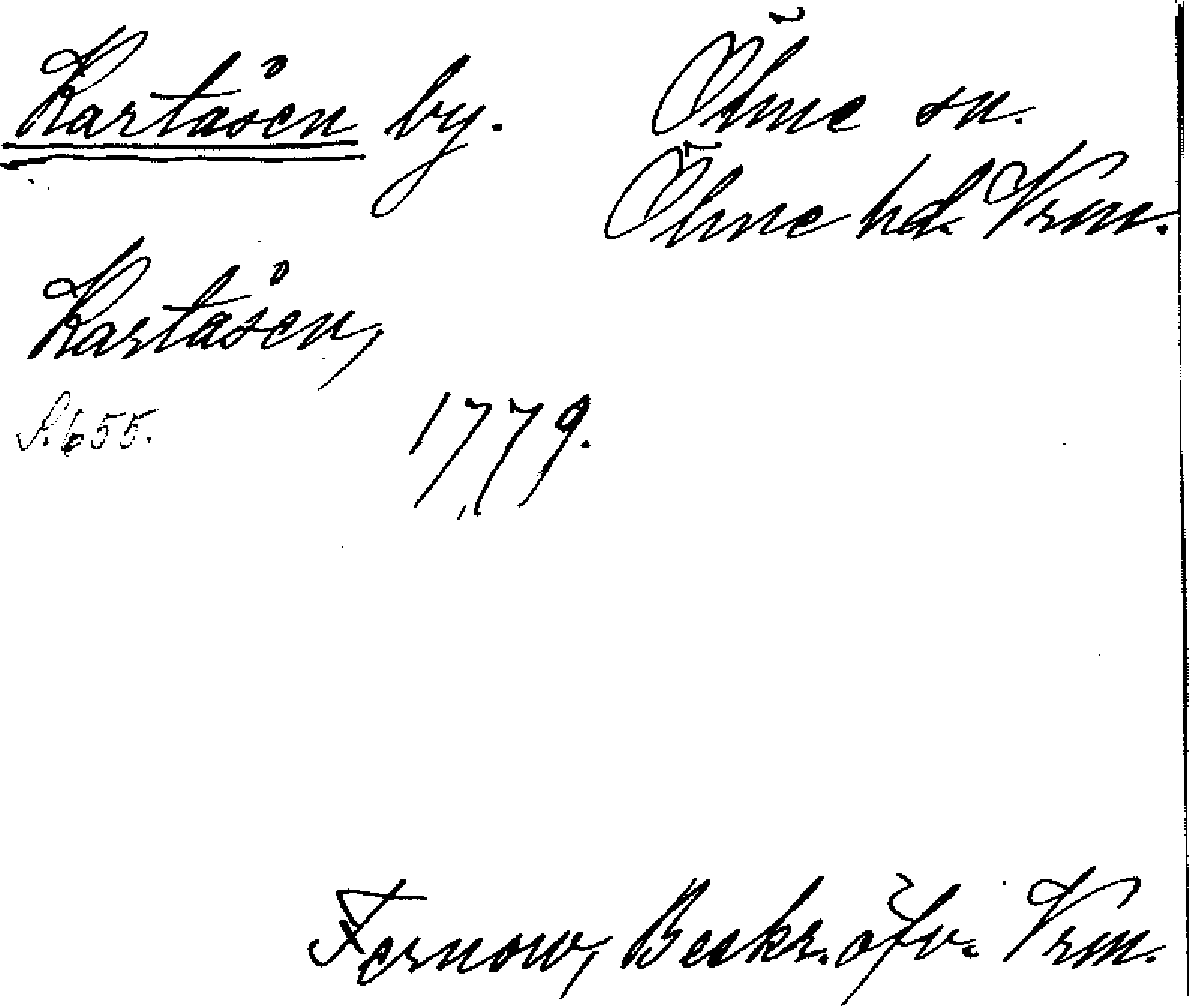 Kartåsen by. Ölme sn.
Ölme hd. Vrm.
Kartåsen,
S. 655. 1779.
Fernow, Beskr. öfv. Vrm.